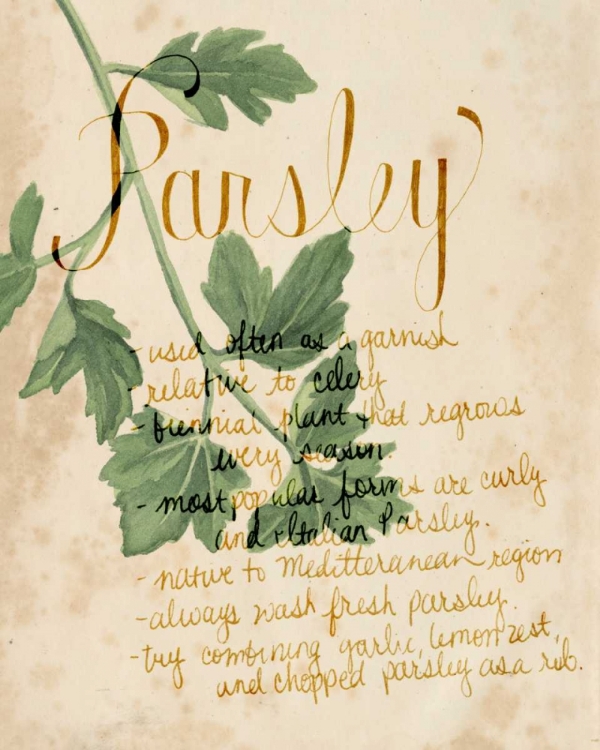 Parsley
- used often as a garnish
- relative to celery
- biennial plant that regrows
every season.
- most popular forms are curly
and Italian Parsley.
- native to Meditteranean region
- always wash fresh parsley.
- try combining garlic, lemon zest,
and chopped parsley as a rub.